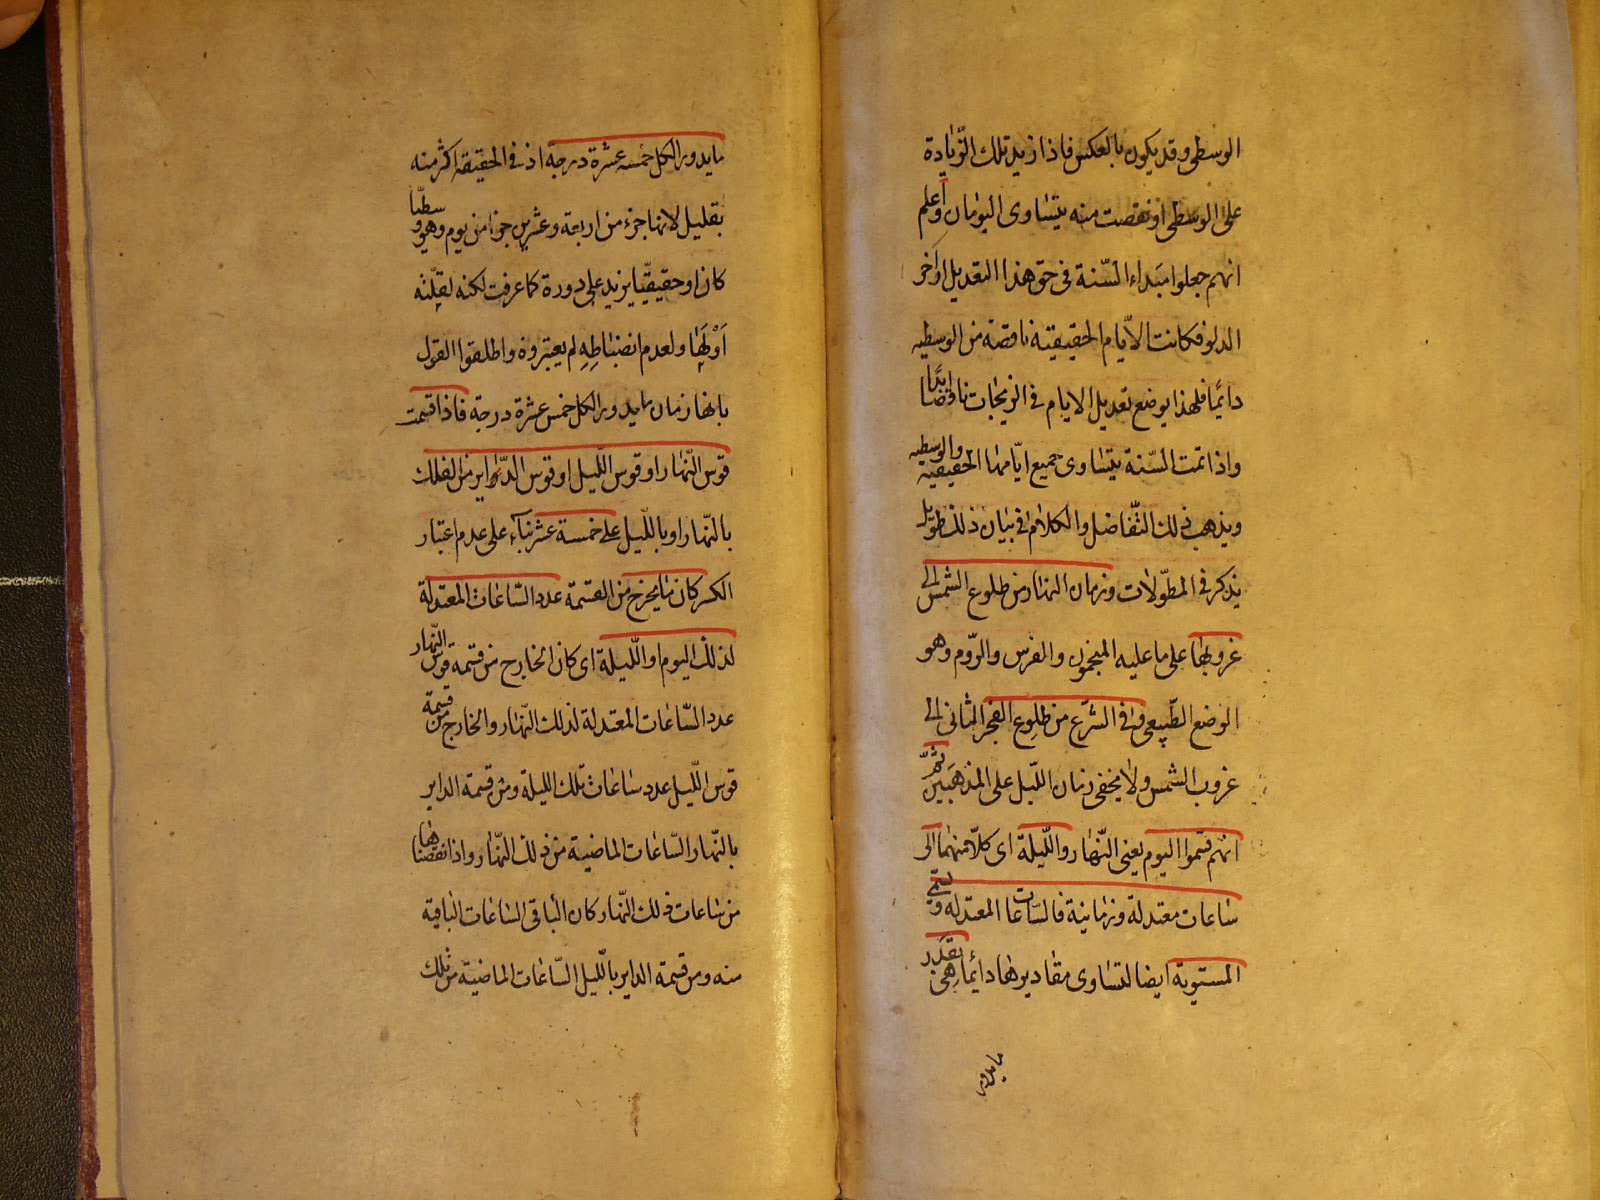 الوسطى وقد يكون بالعكس فاذا زيد تلك الزّيادة
على الوسطى او نقصت منه يتساوى اليومان واعلم
انهم جعلوا مبداء السّنة فى حق هذا التعديل اواخر
الدلو فكانت الأيام الحقيقية ناقصة من الوسطيه
دائمًا فلهذا يوضع تعديل الايام فى الزيجات ناقصا ابدًا
واذا تمت السّنة يتساوى جميع ايّامها الحقيقيه والوسطيه
ويذهب ذلك التّفاضل والكلام فى بيان ذلك طويل
يذكر فى المطوّلات وزمان النهار من طلوع الشمس الى
غروبها على ما عليه المنجمون والفرس والرّوم وهو
الوضع الطّبيعى وفى الشرّع من طلوع الفجر الثانى الى
غروب الشمس ولا يخفى زمان اللّيل على المذهبين ثمّ
انهم قسموا اليوم يعنى النّهار واللّيلة اى كلّا منهما الى
ساعات معتدلة وزمانية فالسّاعات المعتدله وتسمّى
المستوية ايضا لتساوى مقاديرها دائمًا هى بقدر
ما يدور
ما يدور الكل خمسه عشرة درجة اذ فى الحقيقة اكثر منه
بقليل لانها جزء من اربعة وعشرين جزا من يوم وهو وسطيّا
كان او حقيقيّا يزيد على دورة كما عرفت لكنه لقلّته
اَوْ لَها ولعدم انضباطِهِ لم يعتبروه واطلقوا القول
بانها زمان ما يدور الكل خمس عشرة درجة فاذا قسمت
قوس النّهار او قوس اللّيل او قوس الدّاير من الفلك
بالنّهار او باللّيل على خمسة عشر بناء على عدم اعتبار
الكسر كان ما يخرج من القسمة عدد السّاعات المعتدلة
لذلك اليوم او اللّيلة اى كان الخارج من قسمة قوس النّهار
عدد السّاعات المعتدلة لذلك النّهار والخارج من قسمة
قوس اللّيل عدد ساعات تلك الليلة ومن قسمة الداير
بالنّهار السّاعات الماضية من ذلك النّهار واذا نقصناها
من ساعات ذلك النّهار كان الباقى السّاعات الباقية
منه ومن قسمة الداير باللّيل السّاعات الماضية من تلك